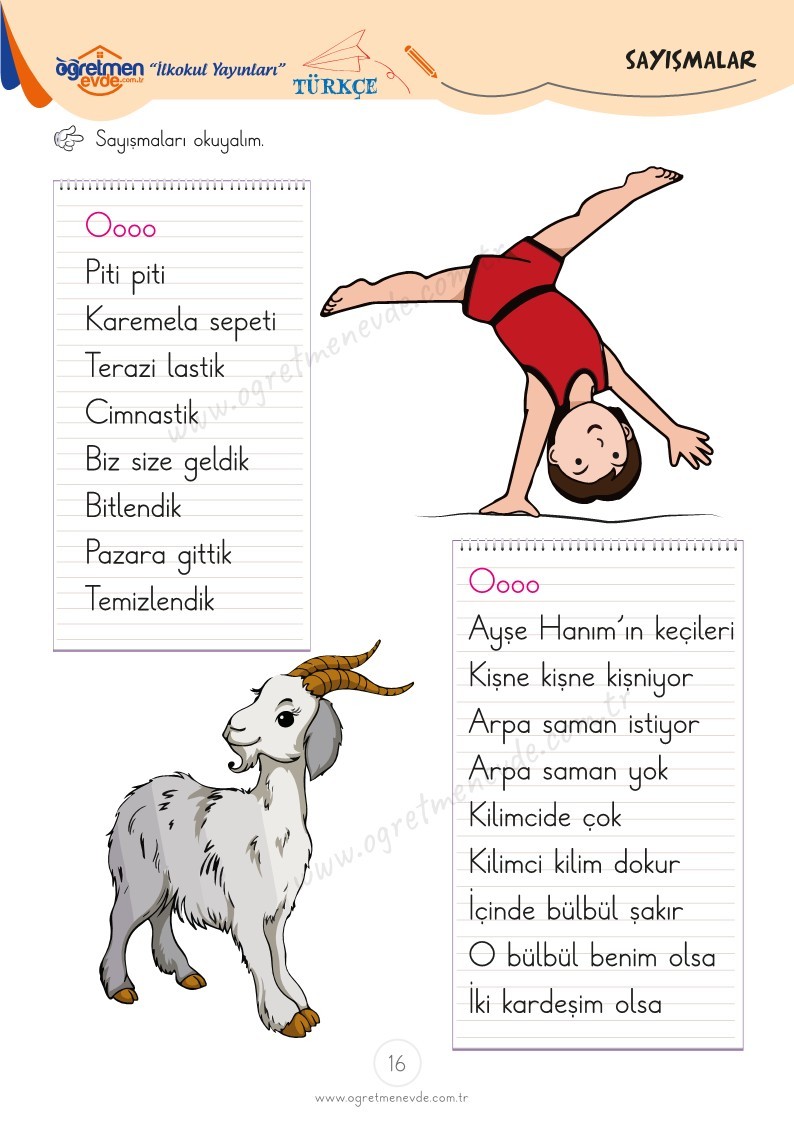 öğretmen
evde.com.tr
"İlkokul Yayınları"
TÜRKÇE
SAYIŞMALAR
Sayışmaları okuyalım.
Oooo
Piti piti
Karemela sepeti
Terazi lastik
Cimnastik
Biz size geldik
Bitlendik
Pazara gittik
Temizlendik
www.ogretmenevde.com.tr
Oooo
Ayşe Hanım'ın keçileri
Kişne kişne kişniyor
Arpa saman istiyor
Arpa saman yok
Kilimcide çok
Kilimci kilim dokur
İçinde bülbül şakır
O bülbül benim olsa
İki kardeşim olsa
www.ogretmenevde.com.tr
16
www.ogretmenevde.com.tr